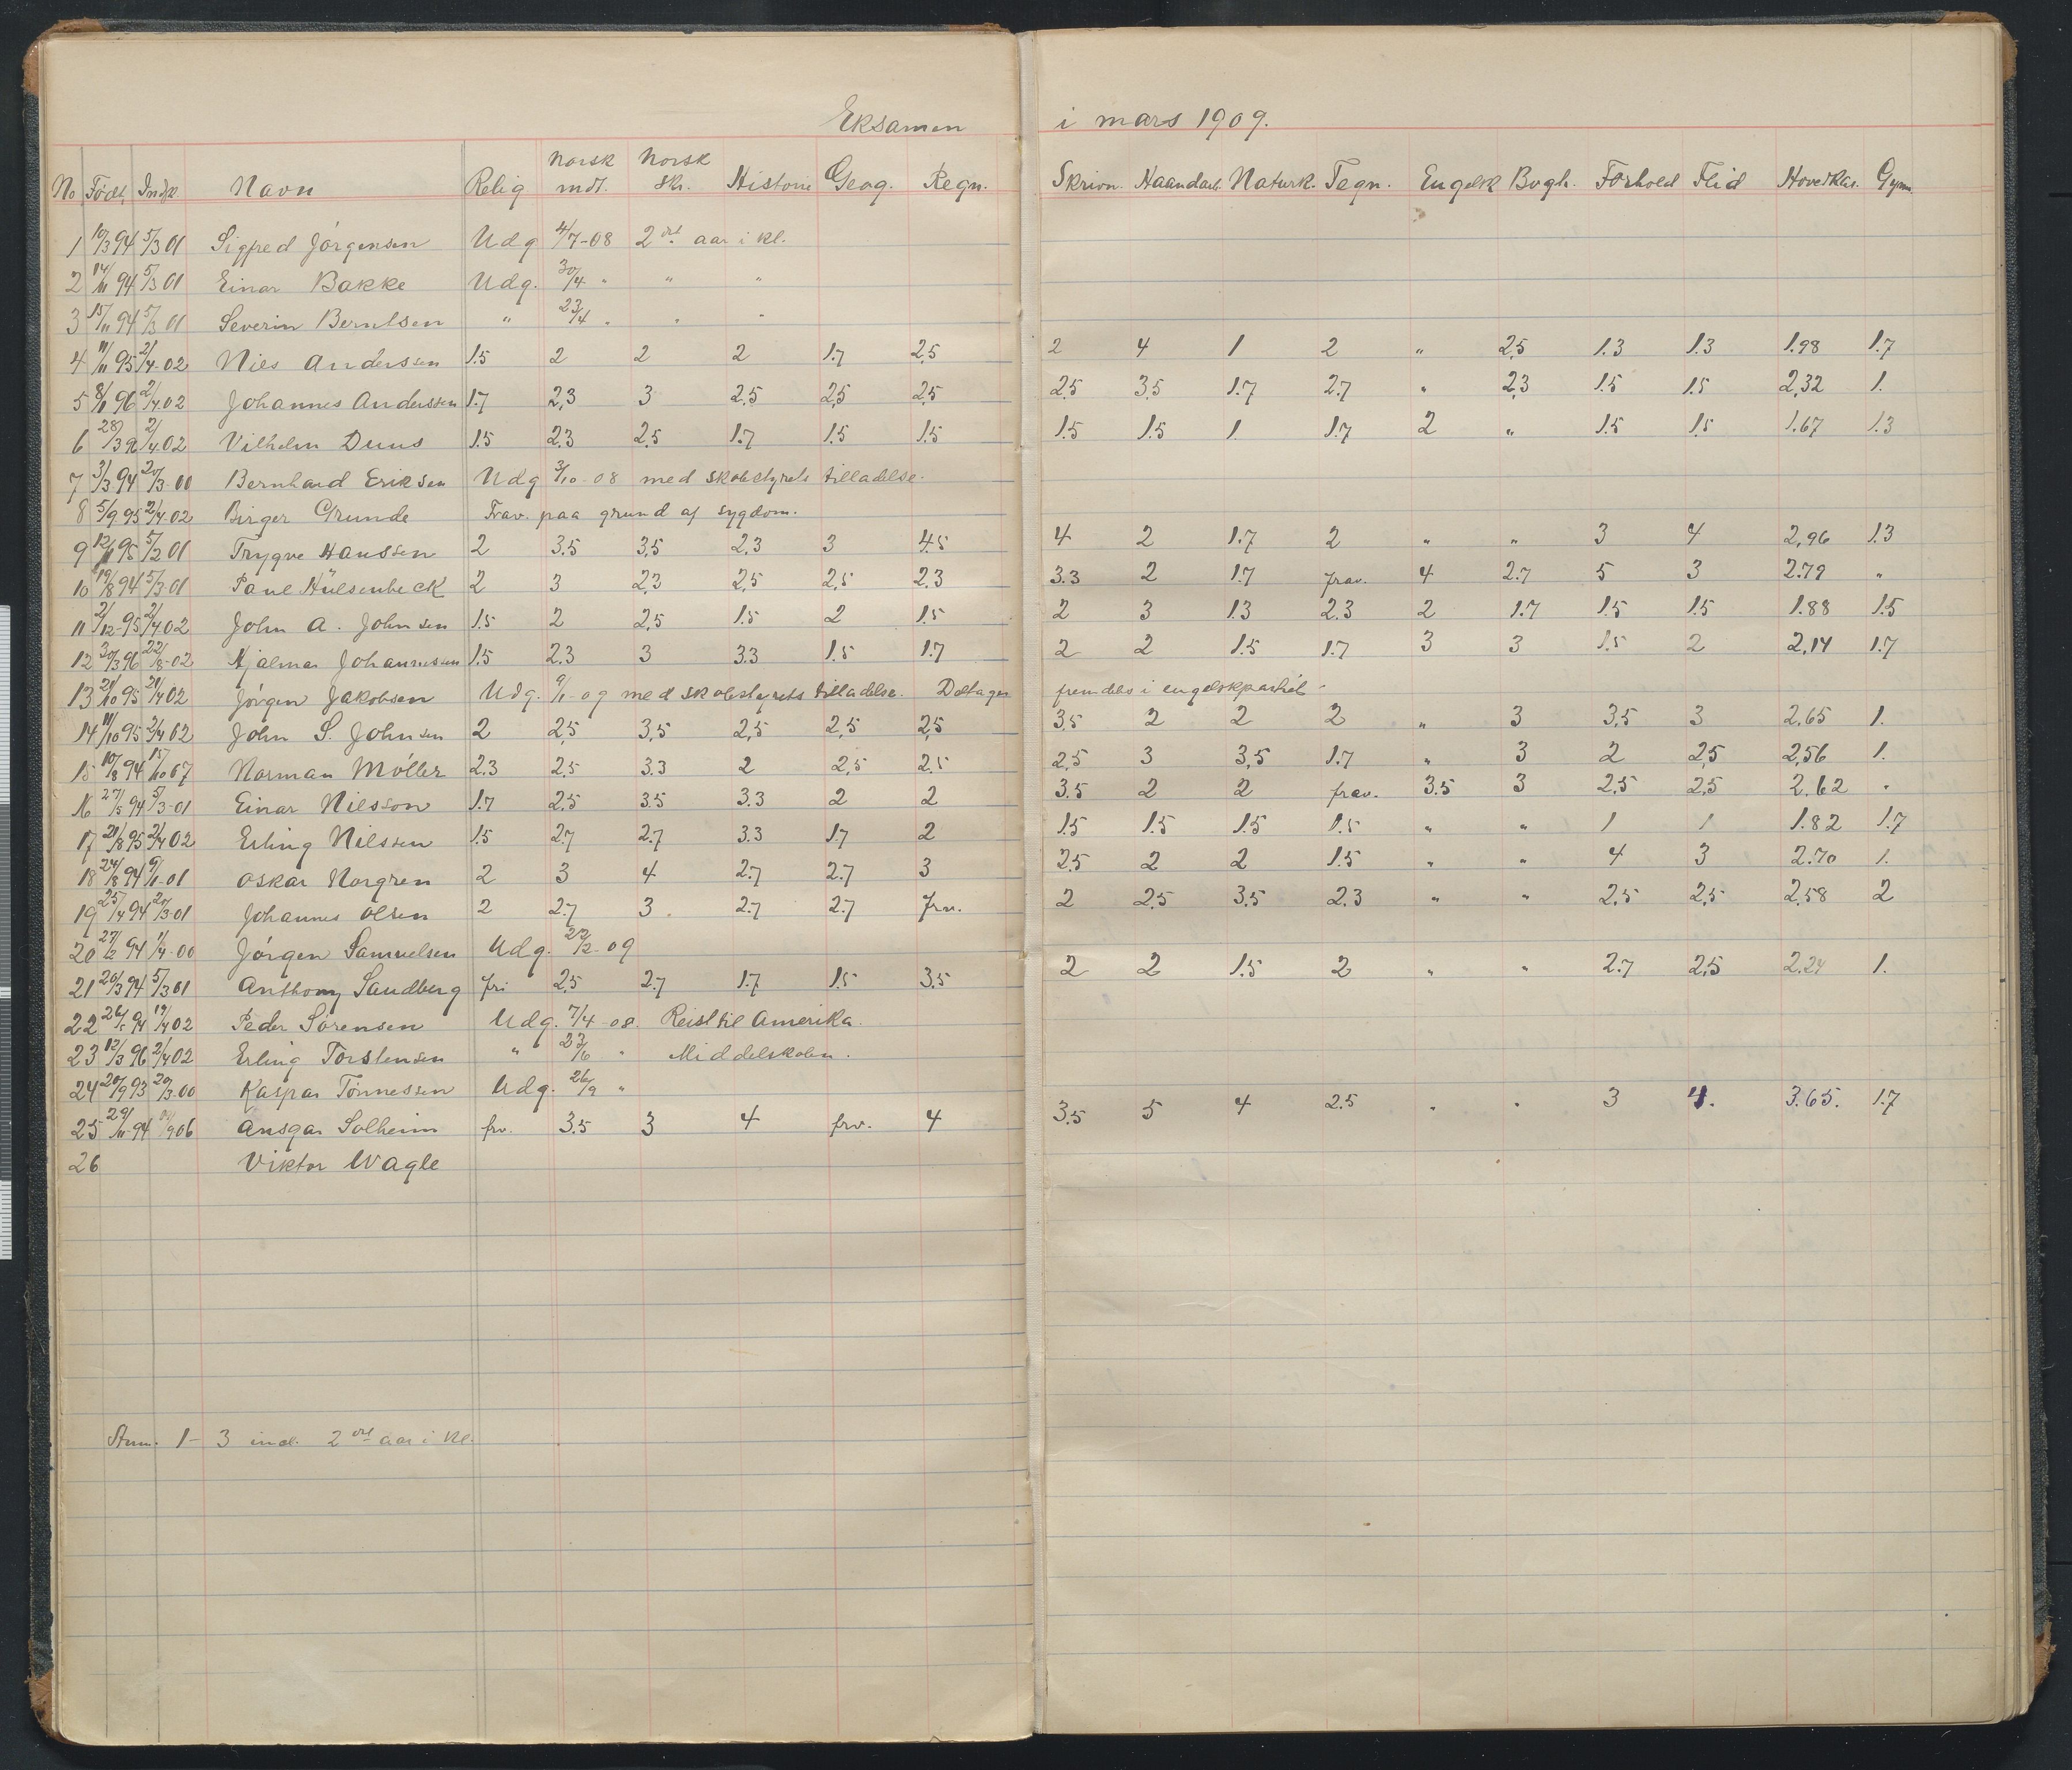 Eksamen i mars 1909.
No Født Indk Navn Relig Norsk mdt. Norsk skr. Historie Geog. Regn. Skrivn. Haandarb. Naturk. Tegn. Engelsk Bogh. Forhold Flid Hovedkar. Gymn.
1 10/3 94 5/3 01 Sigfred Jörgensen Udg 4/7-08 2det aar i kl.
2 14/11 94 5/3 01 Einar Bakke Udg. 30/4 " " "
3 15/11 94 5/3 01 Severin Berntsen " 23/4 " " "
4 11/11 95 2/4-02 Niels Anderssen 1.5 2 2 2 1.7 2.5 2 4 1 2 " 2.5 1.3 1.3 1.98 1.7
5 8/1 96 2/4.02 Johannes Anderssen 1.7 2,3 3 2.5 2,5 2,5 2.5 3.5 1.7 2.7 " 2,3 1.5 1.5 2,32 1.
6 28/3 96 2/4.02 Vilhelm Duus 1.5 2.3 2.5 1.7 1.5 1.5 1.5 1.5 1 1.7 2 " 1.5 1.5 1.67 1.3
7 3/3 94 20/3-00 Bernhard Eriksen Udg 3/10-08 med skolestyrets tilladelse.
8 5/9 95 2/4-02 Birger Grunde Frav. paa grund af sygdom.
9 12/11 95 5/2 01 Trygve Hanssen 2 3.5 3.5 2.3 3 4.5 4 2 1.7 2 " " 3 4 2,96 1.3
10 19/8 94 5/3-01 Paul Hülsenbeck 2 3 2,3 2,5 2,5 2.3 3.3 2 1.7 frav. 4 2.7 5 3 2.79 "
11 2/12-95 2/4 02 John A. Johnsen 1.5 2 2,5 1.5 2 1.5 2 3 1.3 2.3 2 1.7 1.5 1.5 1.88 1.5
12 30/3 96 22/8-02 Hjalmar Johannessen 1.5 2.3 3 3.3 1.5 1.7 2 2 1.5 1.7 3 3 1.5 2 2,14 1.7
13 21/10 95 21/4 02 Jörgen Jakobsen Udg. 9/1-09 med skolestyrets tilladelse. Deltager fremdeles i engelskpartiet.
14 11/10 95 2/4 02 John S. Johnsen 2 2,5 3,5 2,5 2,5 2,5 3,5 2 2 2 " 3 3,5 3 2.65 1.
15 10/8 94 15/10 07 Norman Möller 2.3 2.5 3.3 2 2,5 2.5 2,5 3 3,5 1.7 " 3 2 2,5 2,56 1.
16 27/5 94 5/3-01 Einar Nilsson 1.7 2.5 3.5 3.3 2 2 3.5 2 2 frav. 3.5 3 2,5 2,5 2.62 "
17 21/8 95 2/4 02 Erling Nilssen 1.5 2.7 2.7 3.3 1.7 2 1.5 1.5 1.5 1.5 " " 1 1 1.82 1.7
18 24/8 94 9/1-01 Oskar Norgren 2 3 4 2.7 2.7 3 2.5 2 2 1.5 " " 4 3 2.70 1.
19 25/4 94 20/3-01 Johannes Olsen 2 2.7 3. 2.7 2.7 frv. 2 2.5 3.5 2.3 " " 2.5 2,5 2,58 2
20 27/2 94 1/4-00 Jörgen Samuelsen Udg. 22/2-09
21 20/3 94 5/3 01 Anthony Sandberg fri 2.5 2.7 1.7 1.5 3.5 2 2 1.5 2 " " 2.7 2,5 2.24 1.
22 26/5 94 19/4 02 Peder Sörensen Udg. 7/4-08. Reist til Amerika.
23 12/3 96 2/4 02 Erling Torstensen " 23/6 " Middelskolen.
24 20/9 93 20/3-00 Kaspar Tönnessen Udg. 26/9 "
25 29/11-94 06 Ansgar Solheim frv. 3.5 3 4 frv. 4 3.5 5 4 2.5 " " 3 4. 3.65. 1.7
26 Viktor Wagle
Anm. 1-3 incl. 2det aar i kl.